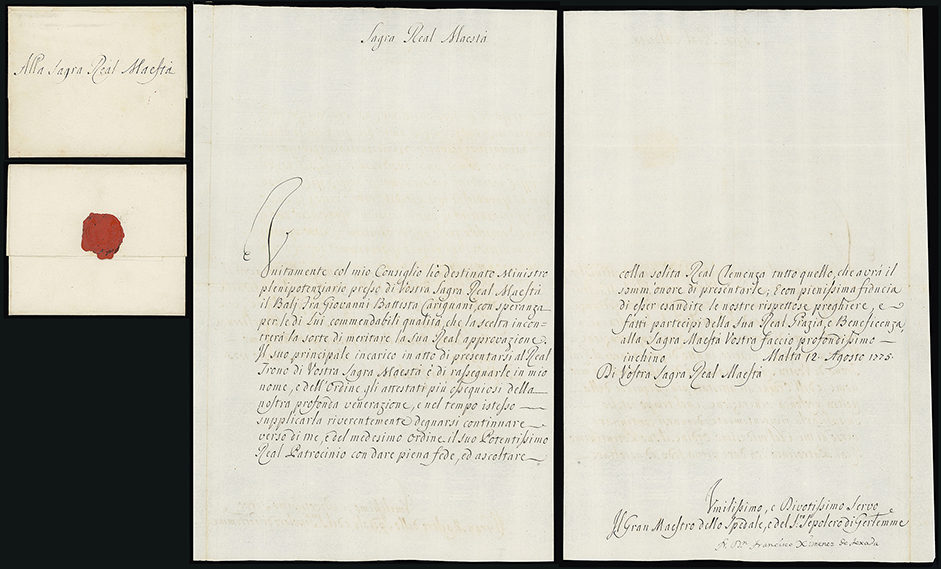 Alla Sagra Real Maestà
Sagra Real Maestà
Unitamente col mio Consiglio hò destinato Ministro
plenipotenziario presso di Vostra Sagra Real Maestà
il Balj Fra Giovanni Battista Carignani, con speranza
per le di Lui commendabili qualità, che la scelta incon-
trerà la sorte di meritare la Sua Real approvazione.
Il suo principale incarico in atto di presentarsi al Real
Trono di Vostra Sagra Maestà è di rassegnarle in mio
nome, e dell'Ordine gli attestati più ossequiosi della
nostra profonda venerazione, e nel tempo istesso
supplicarla riverentemente degnarsi continuare
verso di me, e del medesimo Ordine il suo Potentissimo
Real Patrocinio con dare piena fede, ed ascoltare
colla solita Real Clemenza tutto quello, che avrà il
somm'onore di presentarle; E con pienissima fiducia
di esser esaudite le nostre rispettose preghiere, e
fatti partecipi della Sua Real Grazia, e Beneficenza
alla Sagra Maestà Vostra faccio profondissimo
inchino. Malta 12. Agosto 1775.
Di Vostra Sagra Real Maestà
Umilissimo, e Divotissimo Servo
Il Gran Maestro dello Spedale, e del Sto. Sepolcro di Gerlemme
fr. Dn. Francisco Ximenez de Texada